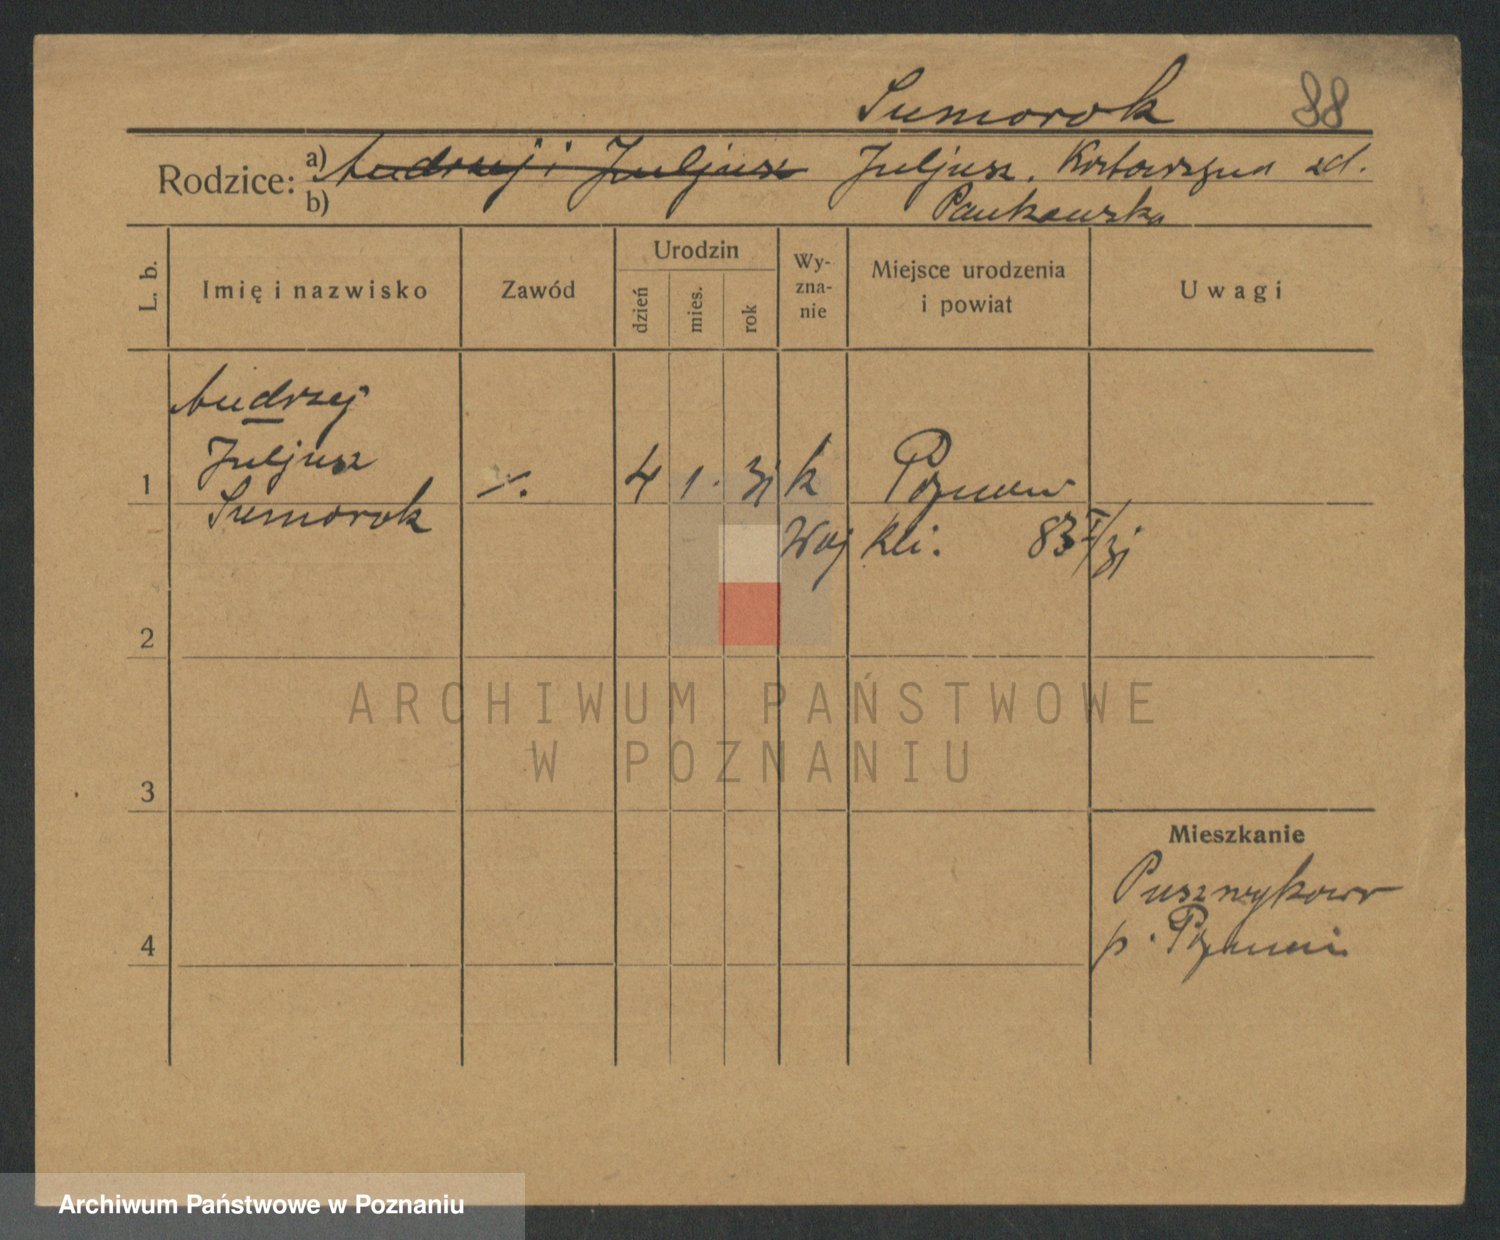 Sumorok 88
Rodzice: a) Andrzej i Juljusz Juljusz. zd.
b) Pankowska
L. b. Imię i nazwisko Zawód Urodzin dzień mies. rok Wy-zna-nie Miejsce urodzenia i powiat Uwagi
Andrzej
Juljusz
1 4 1. 31 k Poznań
Sumorok
Woj kli. 83 I/31
2
ARCHIWUM PAŃSTWOWE
W POZNANIU
3
Mieszkanie
Puszczykowo
4 p. Poznań
Archiwum Państwowe w Poznaniu